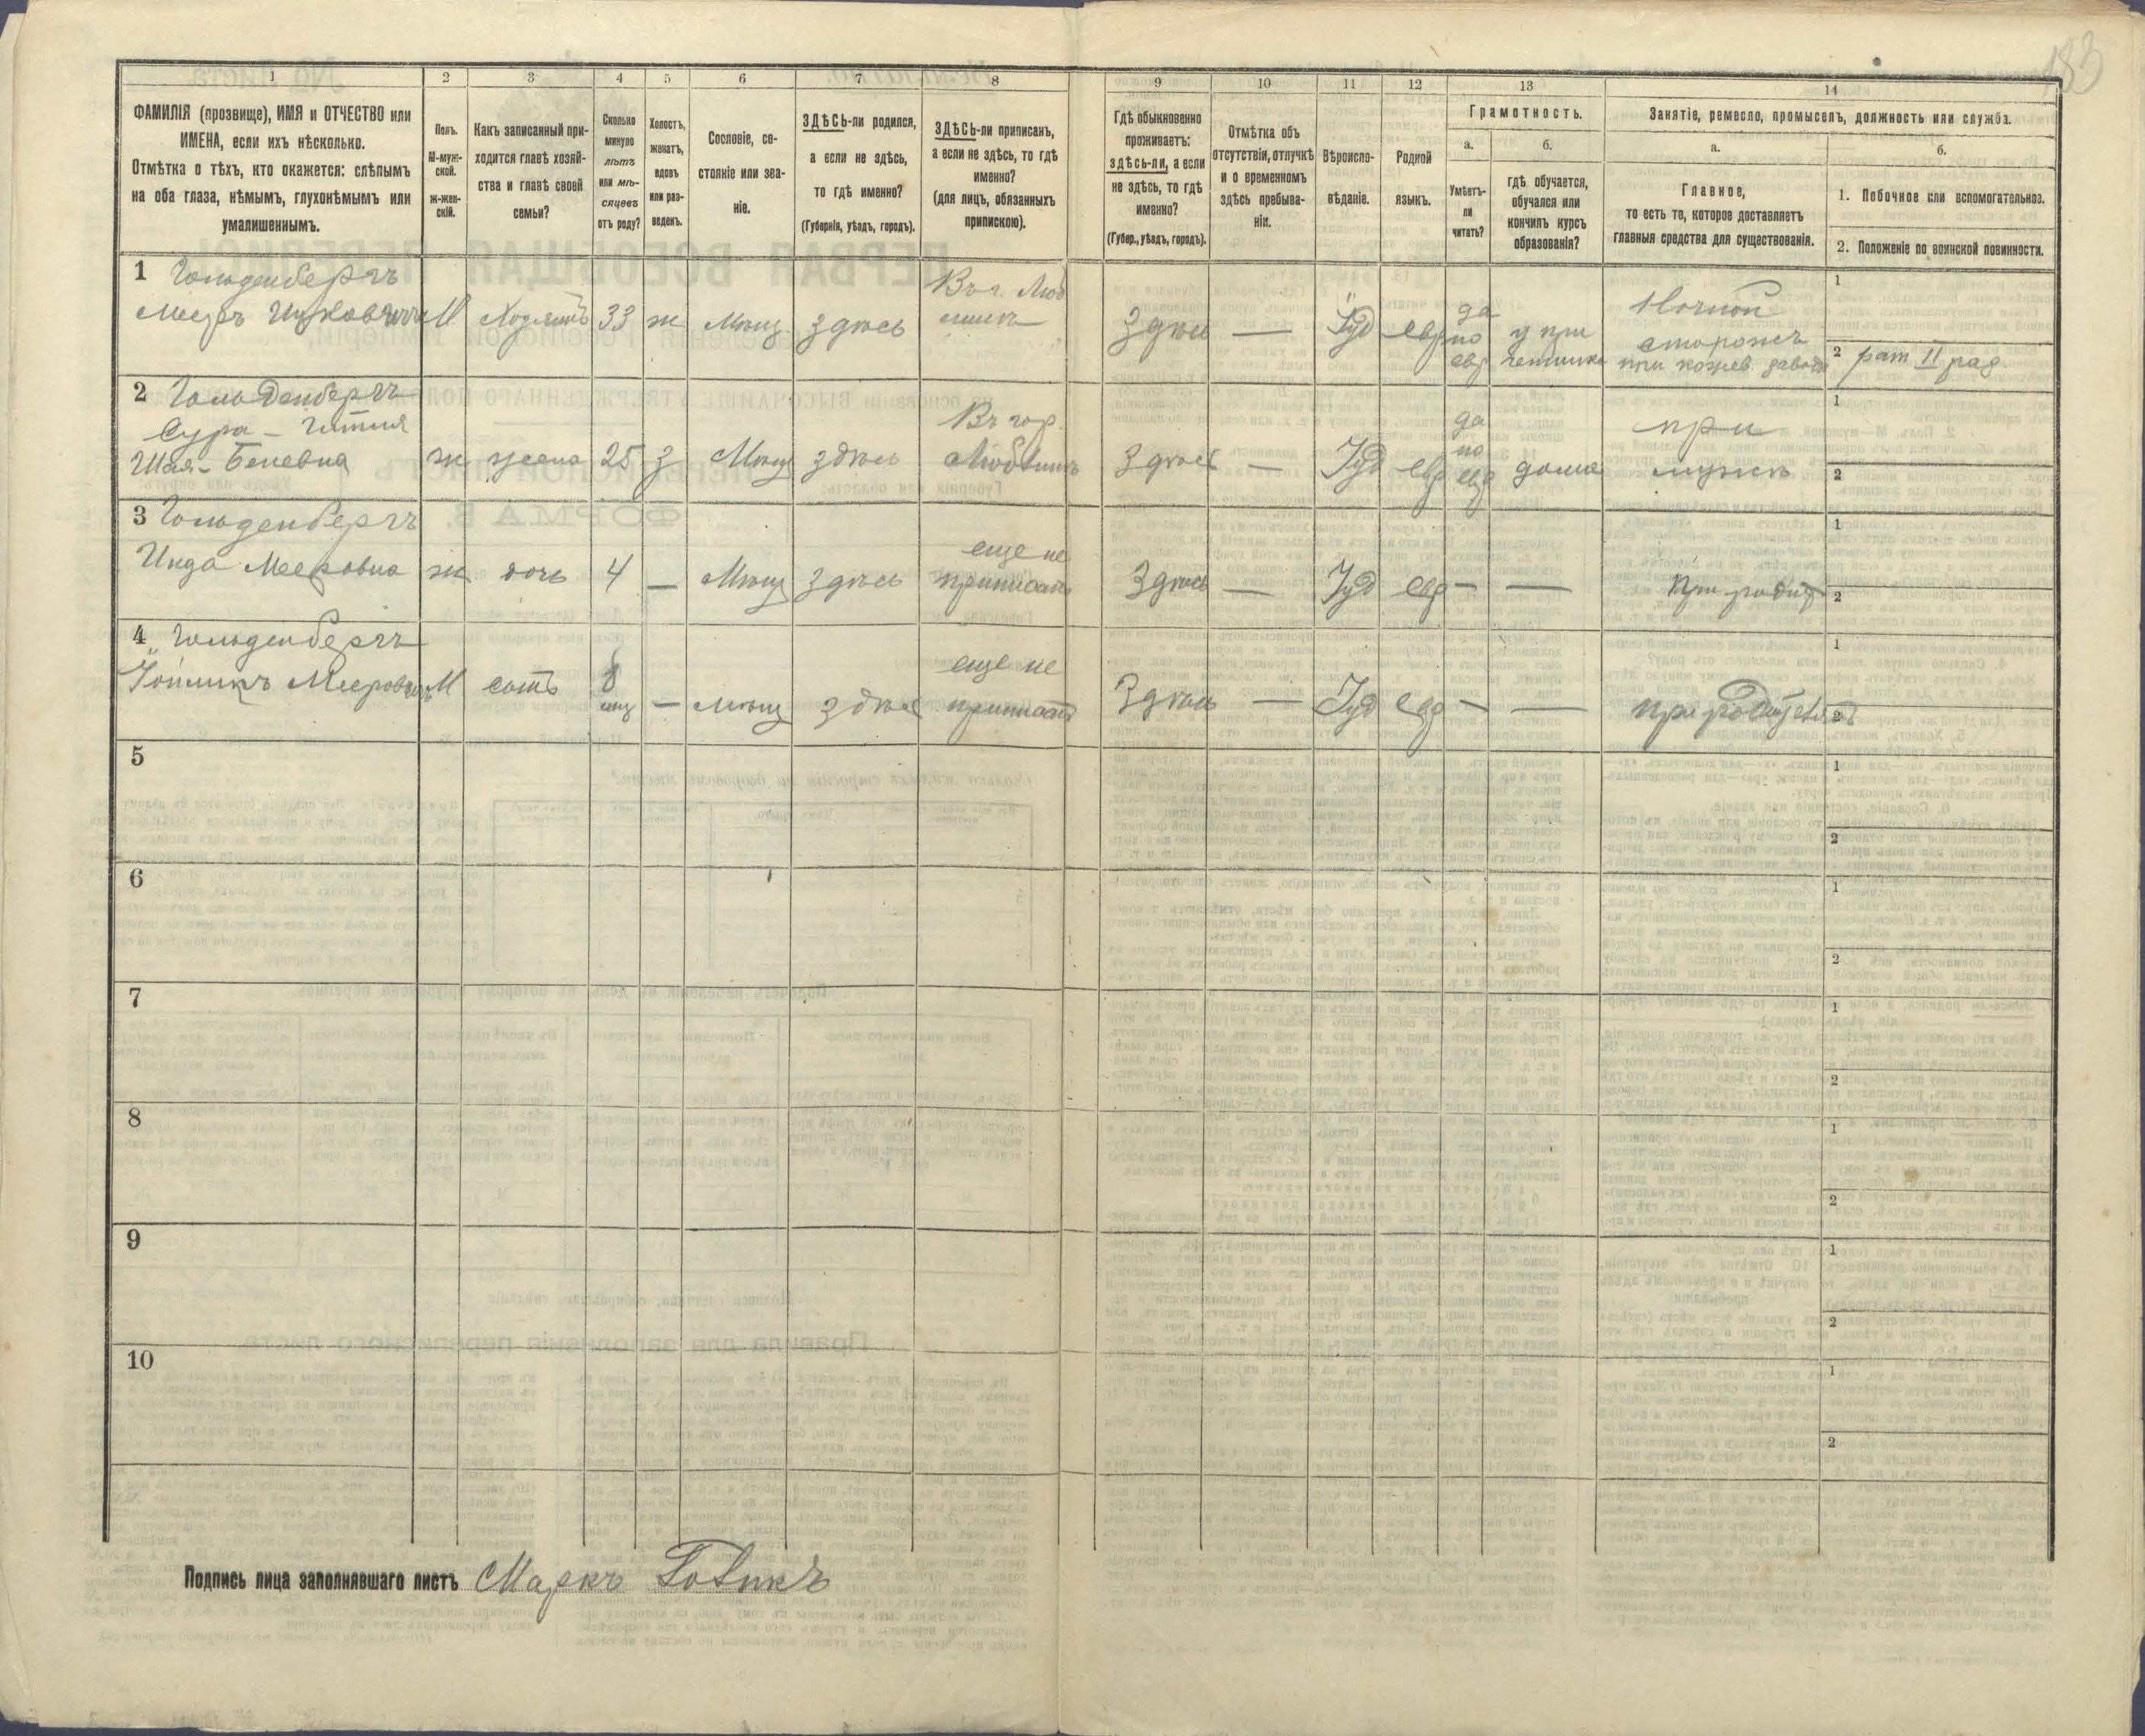 183
1
2
3
4
5
6
7
8
9
10
11
12
13
14
ФАМИЛІЯ (прозвище), ИМЯ и ОТЧЕСТВО или
ИМЕНА, если ихъ нѣсколько.
Отмѣтка о тѣхъ, кто окажется: слѣпымъ
на оба глаза, нѣмымъ, глухонѣмымъ или
умалишеннымъ.
Полъ.
М-муж-
ской.
ж-жен-
скій.
Какъ записанный при-
ходится главѣ хозяй-
ства и главѣ своей
семьи?
Сколько
минуло
лѣтъ
или мѣ-
сяцевъ
отъ роду?
Холостъ,
женатъ,
вдовъ
или раз-
веденъ.
Сословіе, со-
стояніе или зва-
ніе.
ЗДѢСЬ-ли родился,
а если не здѣсь,
то гдѣ именно?
(Губернія, уѣздъ, городъ).
ЗДѢСЬ-ли приписанъ,
а если не здѣсь, то гдѣ
именно?
(для лицъ, обязанныхъ
припискою).
Гдѣ обыкновенно
проживаетъ:
здѣсь-ли, а если
не здѣсь, то гдѣ
именно?
(Губер., уѣздъ, городъ).
Отмѣтка объ
отсутствіи, отлучкѣ
и о временномъ
здѣсь пребыва-
ніи.
Вѣроиспо-
вѣданіе.
Родной
языкъ.
Грамотность.
а.
Умѣетъ-
ли
читать?
б.
гдѣ обучается,
обучался или
кончилъ курсъ
образованія?
Занятіе, ремесло, промыселъ, должность или служба.
а.
Главное,
то есть то, которое доставляетъ
главныя средства для существованія.
б.
1. Побочное или вспомогательное.
2. Положеніе по воинской повинности.
1 Гольденбергъ
Мееръ Ицковичъ М Хозяинъ 33 ж Мѣщ. здѣсь
Здѣсь — Іуд евр
да
по
евр
Ночной
сторожъ
при кожев. заводѣ
1
2 рат II раз.
2 Гольденбергъ
Сура - Гитля
ж жена 25 з Мѣщ здѣсь
Въ гор.
Люблинъ
Здѣсь — Іуд евр
да
по
евр
дома
при
мужѣ
1
2
3 Гольденбергъ
Мееровна ж дочь 4 — Мѣщ здѣсь
еще не
приписана
Здѣсь — Іуд евр — —
При родит
1
2
4 Гольденбергъ
М сынъ 8
мѣс
— мѣщ здѣсь
еще не
приписанъ
Здѣсь — Іуд евр — —
при родителяхъ
1
2
5
1
2
6
1
2
7
1
2
8
1
2
9
1
2
10
1
2
Подпись лица заполнявшаго листъ Маркъ